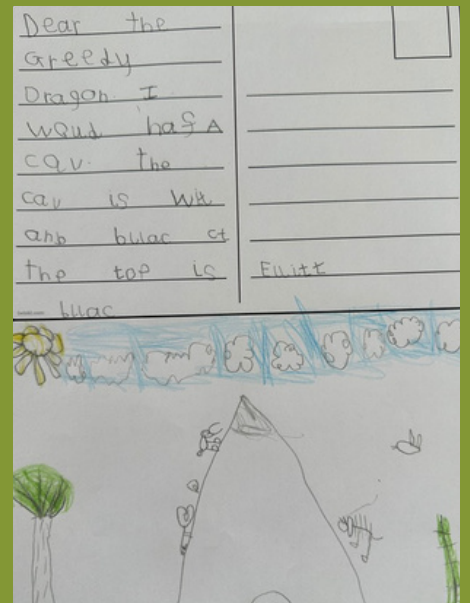 Dear the
Greedy
Dragon I
woud haf A
cav. the
cav is wit
anb bllac ct
the top is
bllac
Elliтt